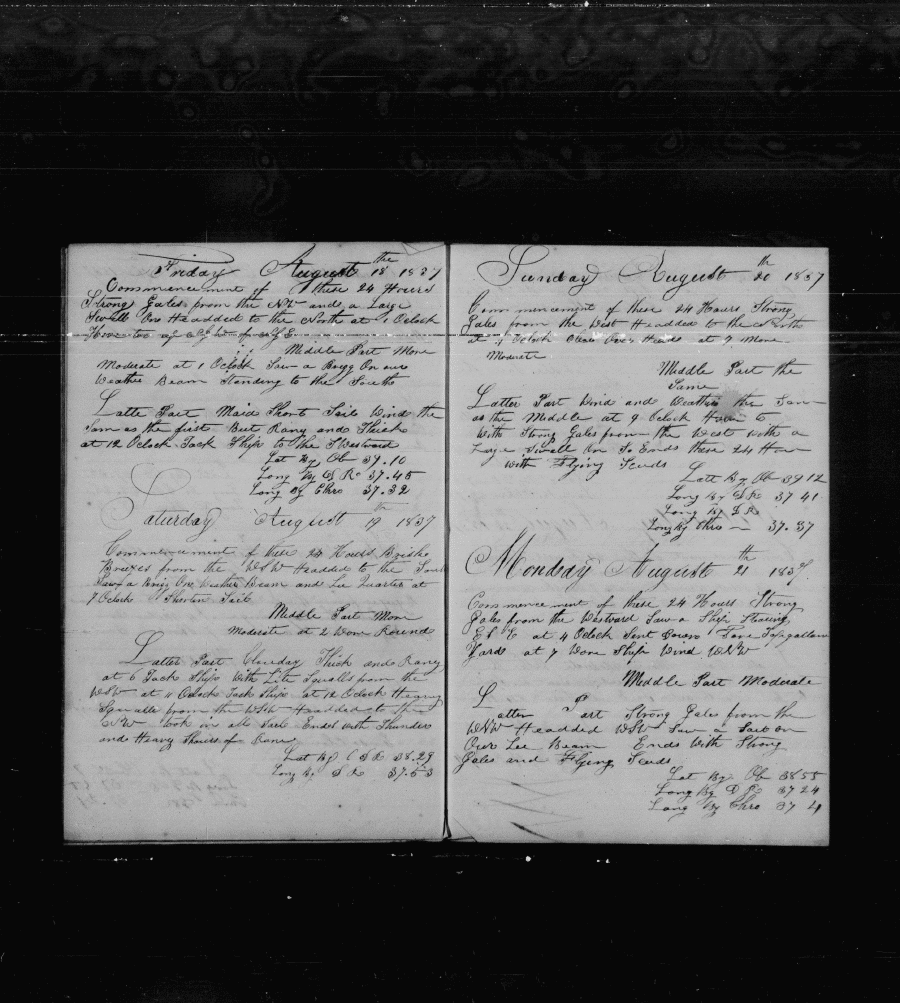 Friday August 18th 1837
Commencement of these 24 Hours
Strong Gales from the NW and a Large
Swell One Headded to the North at 1 Oclock
Middle Part More
Moderate at 1 Oclock Saw a Barqq On our
Weather Beam Standing to the South
Latter Part Maid Short Sails Wind the
Sam as the first But Rany and Thick
at 12 Oclock Tack Ship to the SWestward
Lat By Ob 39.10
Long By D R 37.45
Long By Chro 37.32
Saturday August 19th 1837
Commencement of these 24 Hours Briske
Breezes from the WSW Headded to the South
Saw a Brigg One Weather Beam and Lee Quarter at
7 Oclock Shorten Sails
Middle Part More
Moderate at 2 Wore Round
Latter Part Clouday Thick and Rany
at 6 Tack Ship With Lite Squalls from the
WSW at 11 Oclock Tack Ship at 12 Oclock Heavy
Squalls from the WSW Headded to the
NW took in all Sail Ends with Thunder
and Heavy Showers of Rane
Lat By D R 38.29
Long By D R 37.53
Sunday August 20th 1837
Commencement of these 24 Hours Strong
Gales from the West Headded to the North
at Oclock Clear Over Heads at 9 More
Moderate
Middle Part the
Same
Latter Part Wind and Weather the Sam
as the Middle at 9 Oclock to
With Strong Gales from the West with a
Large Swell On So Ends these 24 Hour
with Flying Scuds
Latt By Ob 39 12
Long By D R 37 41
Long By D R
Long By Chro — 37.37
Monday August 21th 1837
Commencement of these 24 Hours Strong
Gales from the Westward Saw a Ship Stearing
E S E at 4 Oclock Sent Down Fore Topgallan
Yards at 7 Wore Ship Wind WNW
Middle Part Moderate
Latter Part Strong Gales from the
WNW Headded WSW Saw a Sail on
Our Lee Beam Ends With Strong
Gales and Flying Scuds
Lat By Ob 38 58
Long By D R 37 24
Long By Chro 37 4